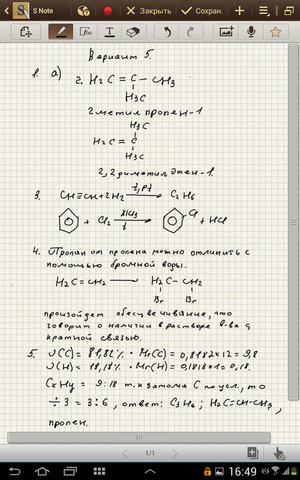 S Note
Закрыть
Сохран.
Вариант 5.
1. а)
2. H₂C = C – CH₃
H₃C
2 метил пропен-1
H₃C
H₂C = C
H₃C
2,2 диметил этен-1.
3. CH≡CH+2H₂ t,pt C₂H₆
+ Cl₂ t Cl + HCl
4. Пропан от пропена можно отличить с
помощью бромной воды.
H₂C=CH₂ → H₂C – CH₂
Br Br
произойдет обесцвечивание, что
говорит о наличии в растворе в-ва с
кратной связью.
5. ω(C)= 81,82% · Mr(C)= 0,8182*12=9,8
ω(H)= 18,18% · Mr(H)= 0,1818*1=0,18.
CxHy = 9:18 т.к атома C по усл., то
÷3 = 3:6, ответ: C₃H₆; H₂C=CH–CH₃,
пропен.
1/1
16:49